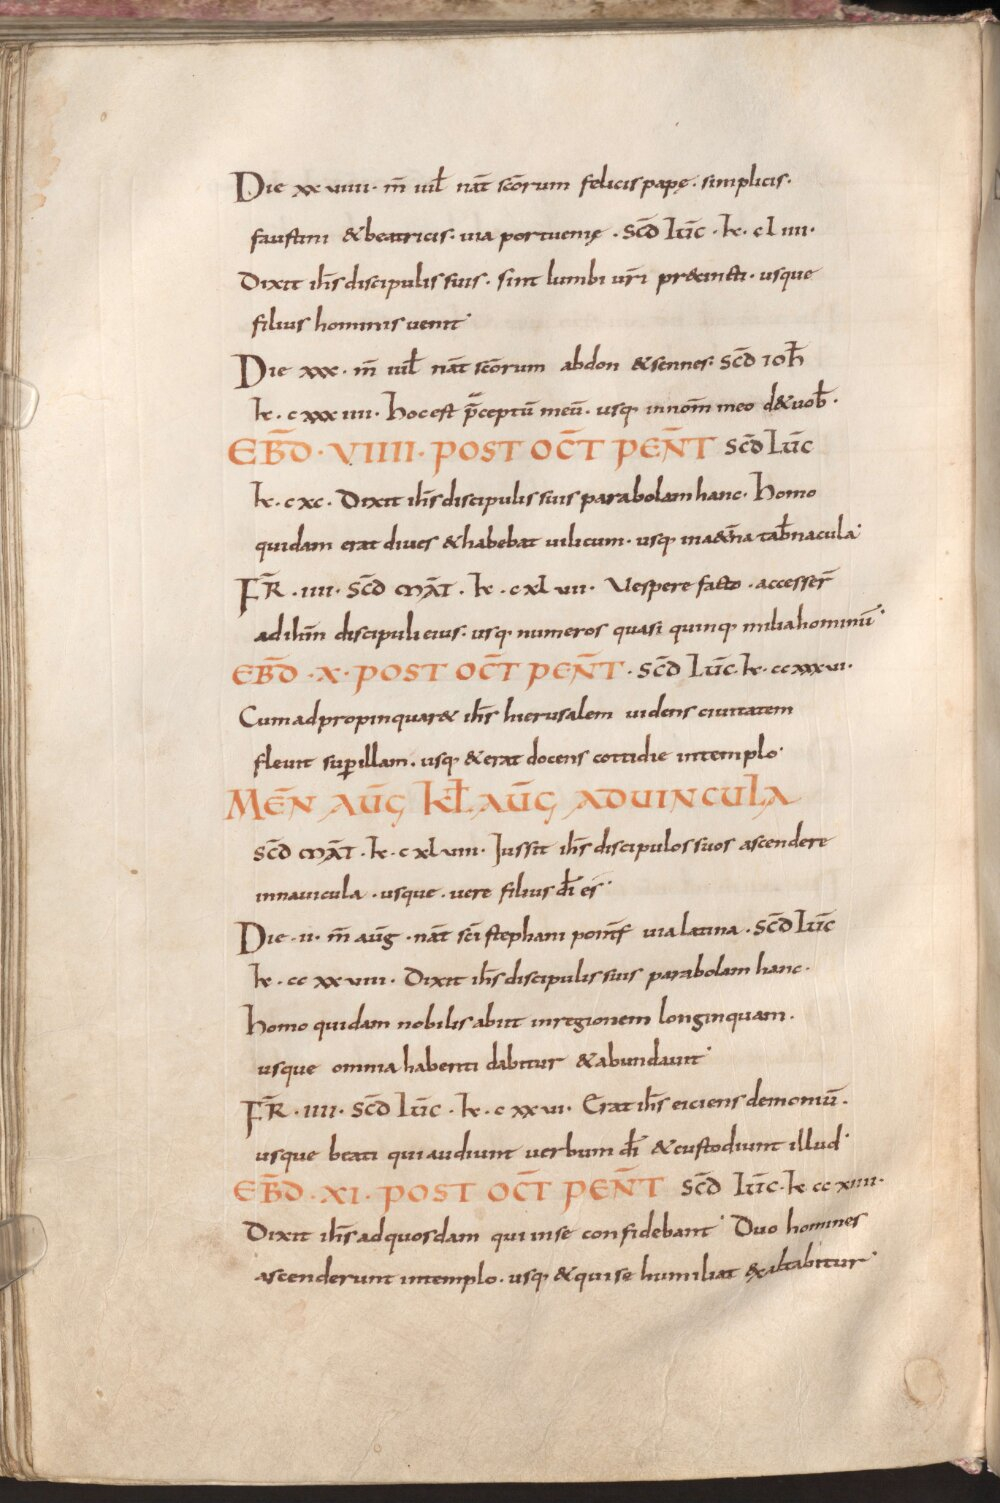 Die xxviiii. m̄ iul̄ nat̄ sc̄orum felicis pape. simplicis.
faustini & beatricis. uia portuensę. sc̄d luc̄. k. clıııı.
Dixit ih̄s discipulis suis. sint lumbi ur̄i pr&cincti. usque
filius hominis uenit
Die xxx. m̄ iul̄ nat̄ sc̄orum abdon & sennes. sc̄d ioh̄
k. cxxxiiii. hoc est p̄ceptū meū. usq. in nom̄ meo d& uob̄.
EB̄D. VIIII. POST OC̄T PEN̄T sc̄d Luc̄
k. cxc. Dixit ih̄s discipulis suis parabolam hanc. homo
quidam erat diues & habebat uilicum. usq. in a&n̄a tab̄nacula
FR̄. IIII. sc̄d MAT̄. k. cxlvii. Vespere facto. accesser̄
ad ih̄m discipuli eius. usq. numeros quasi quinq. milia hominū
EB̄D. X. POST OC̄T PEN̄T. sc̄d Luc̄. k. ccxxxvi.
Cum adpropinquar& ih̄s hierusalem uidens ciuitatem
fleuit sup illam. usq. & erat docens cottidie in templo
MEN̄ AUḠ KL̄ AUḠ AD UINCULA
sc̄d MAT̄. k. cxlviii. Jussit ih̄s discipulos suos ascendere
in nauicula. usque. uere filius dī es
Die. ii. m̄ auḡ. nat̄ sc̄i stephani pontf̄ uia latina. sc̄d Luc̄
k. ccxxviii. Dixit ih̄s discipulis suis parabolam hanc.
homo quidam nobilis abiit in regionem longinquam.
usque omni a habenti dabitur & abundauit
FR̄. IIII. sc̄d luc̄. k. cxxvi. Erat ih̄s eiciens demoniū.
usque beati qui audiunt uerbum dī & custodiunt illud
EB̄D. XI. POST OC̄T PEN̄T sc̄d Luc̄. k ccxiiii.
Dixit ih̄s ad quosdam qui in se confidebant Duo homines
ascenderunt in templo. usq. & qui se humiliat exaltabitur